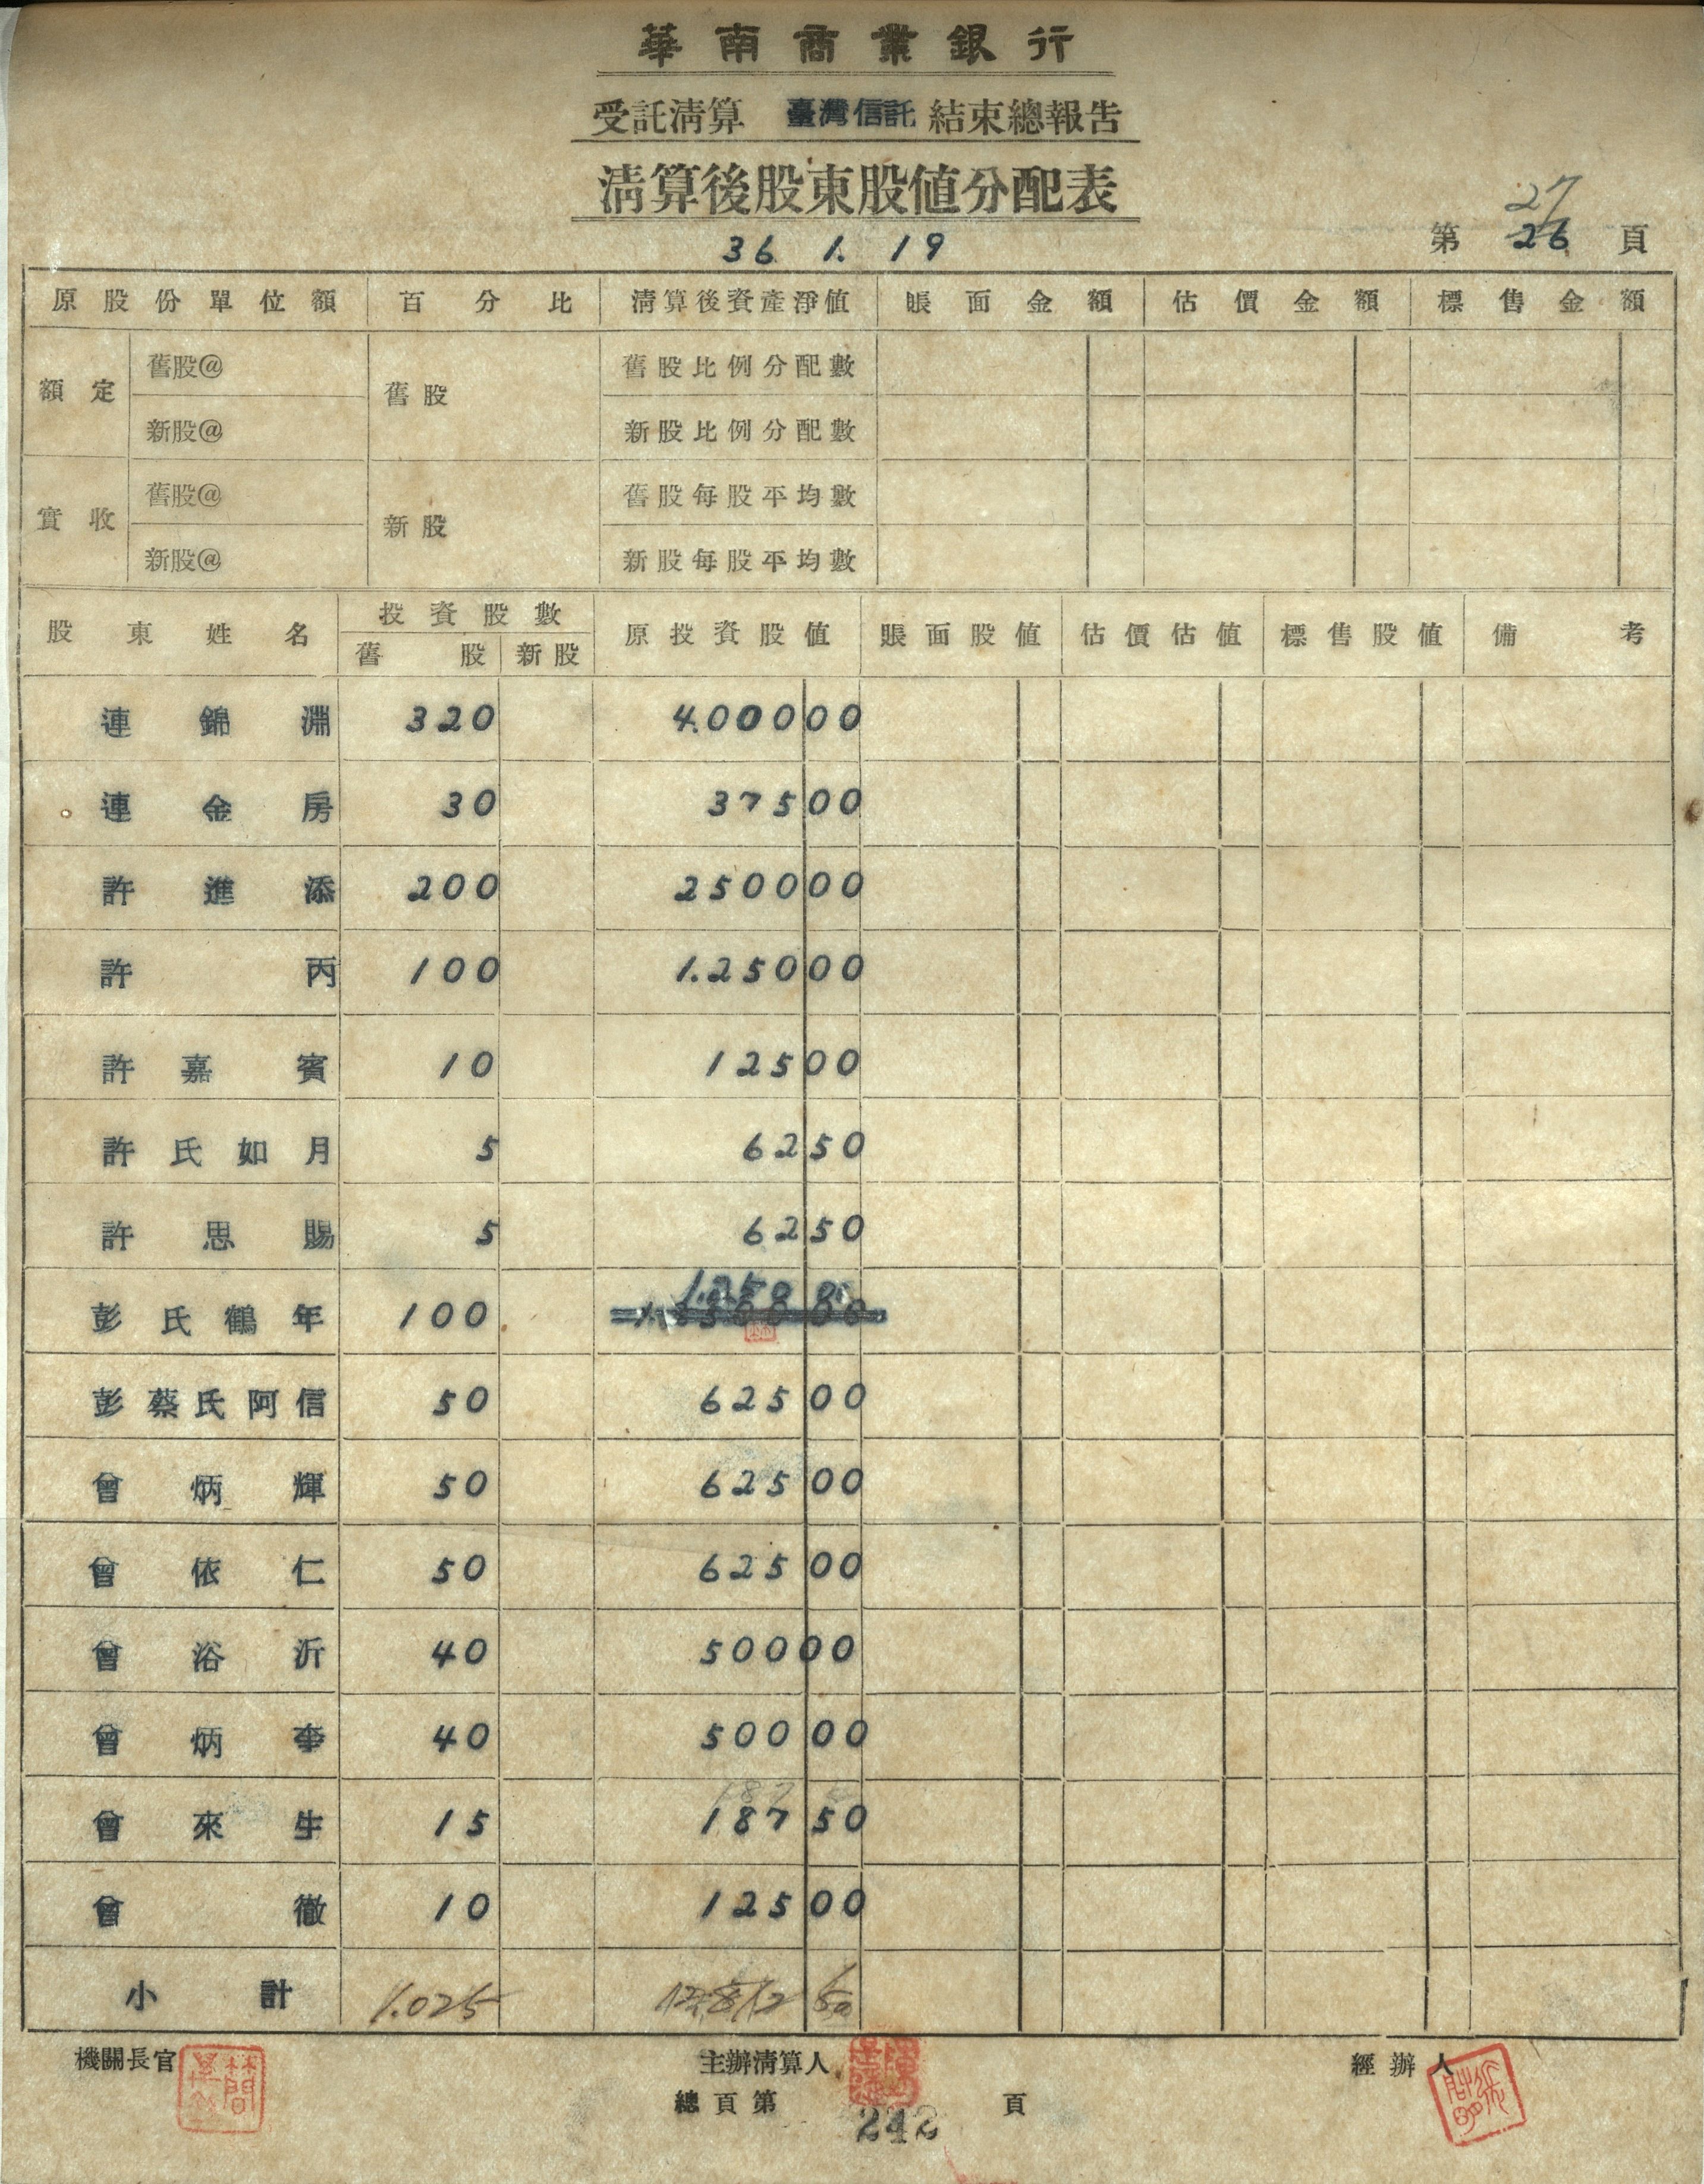 華南商業銀行
受託清算 臺灣信託 結束總報告
清算後股東股值分配表
36. 1. 19
27
第 26 頁
原股份單位額 百分比 清算後資產淨值 賬面金額 估價金額 標售金額
額定 舊股@ 舊股 舊股比例分配數
新股@ 新股比例分配數
實收 舊股@ 新股 舊股每股平均數
新股@ 新股每股平均數
股東姓名 投資股數 原投資股值 賬面股值 估價估值 標售股值 備考
舊股 新股
連錦淵 320 4.00000
連金房 30 37500
許進添 200 250000
許丙 100 1.25000
許嘉賓 10 12500
許氏如月 5 6250
許思賜 5 6250
彭氏鶴年 100 1.250 00
彭蔡氏阿信 50 62500
曾炳輝 50 62500
曾依仁 50 62500
曾浴沂 40 50000
曾炳 40 50000
187
曾來生 15 18750
曾徹 10 12500
小計 1.025 12.812 50
機關長官 主辦清算人 經辦人
總頁第 242 頁